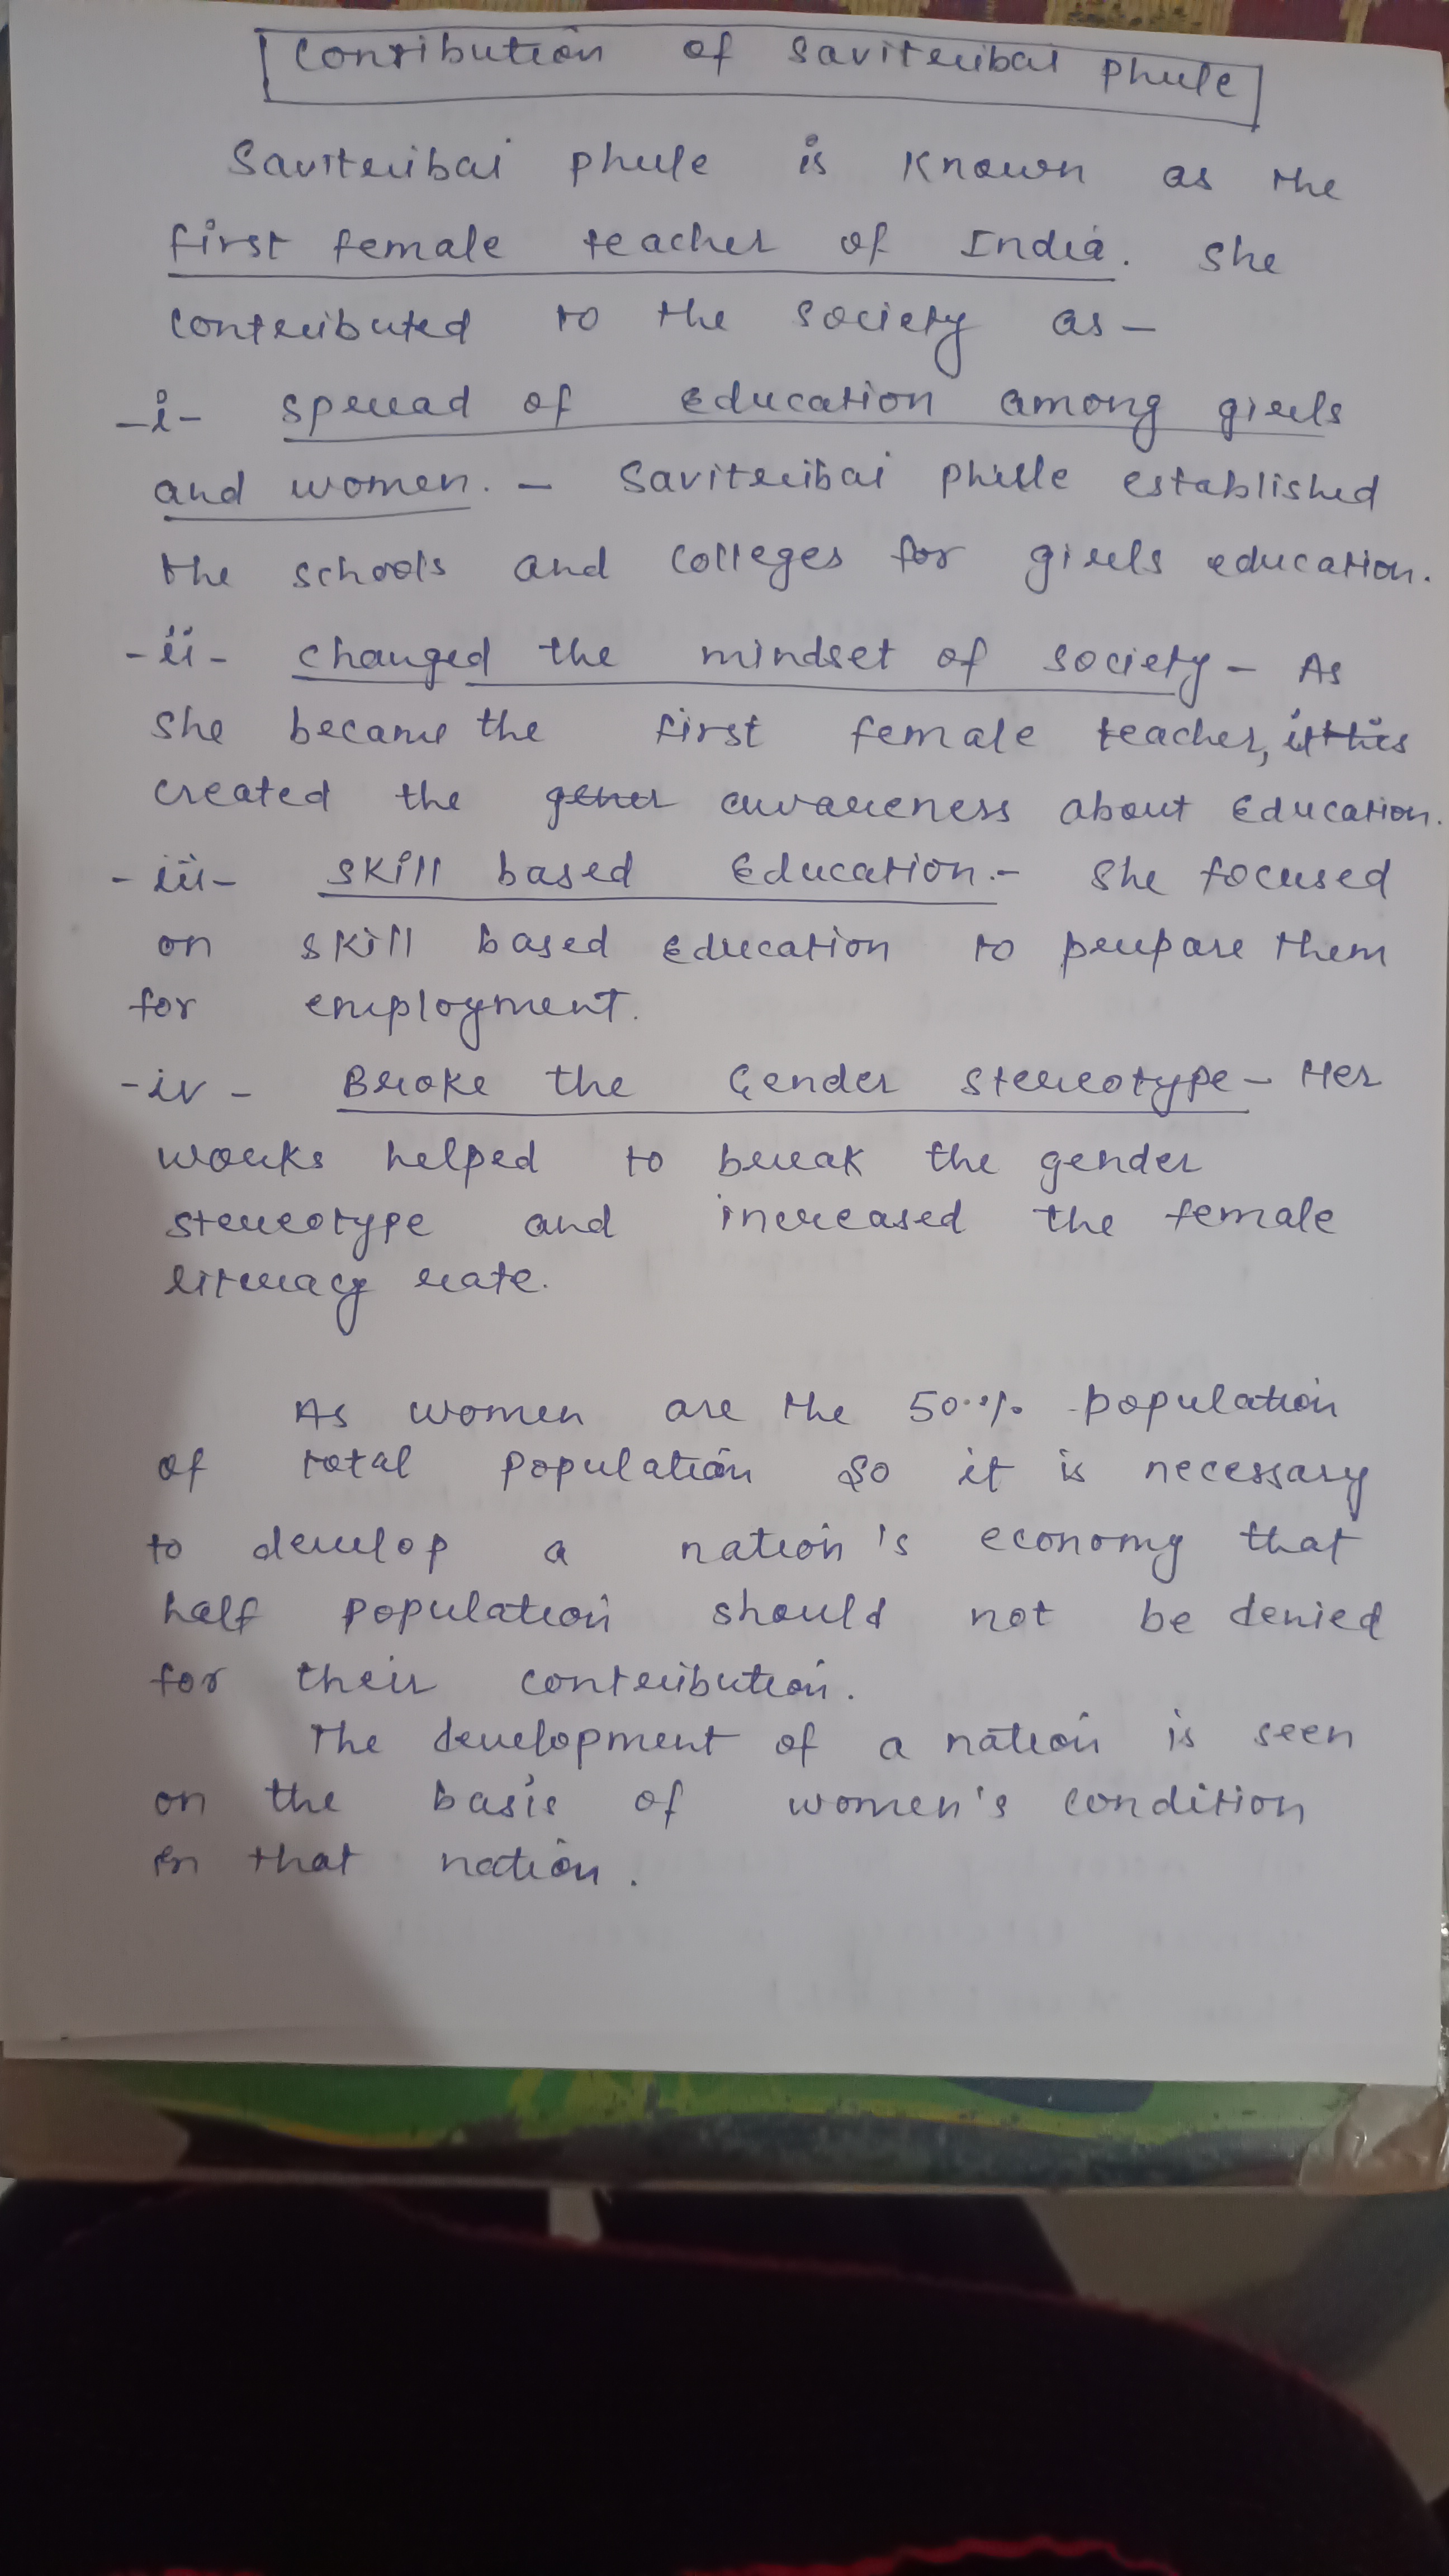 Contribution of Savitribai Phule
Savitribai Phule is known as the
first female teacher of India. She
contributed to the society as -
-i- spread of education among girls
and women. - Savitribai Phule established
the schools and colleges for girls education.
-ii- changed the mindset of society - As
she became the first female teacher, it this
created the gener awareness about education.
-iii- Skill based Education.- She focused
on skill based education to prepare them
for employment.
-iv- Broke the Gender stereotype - Her
works helped to break the gender
stereotype and increased the female
literacy rate.
As women are the 50% population
of total population so it is necessary
to develop a nation's economy that
half population should not be denied
for their contribution.
The development of a nation is seen
on the basis of women's condition
in that nation.